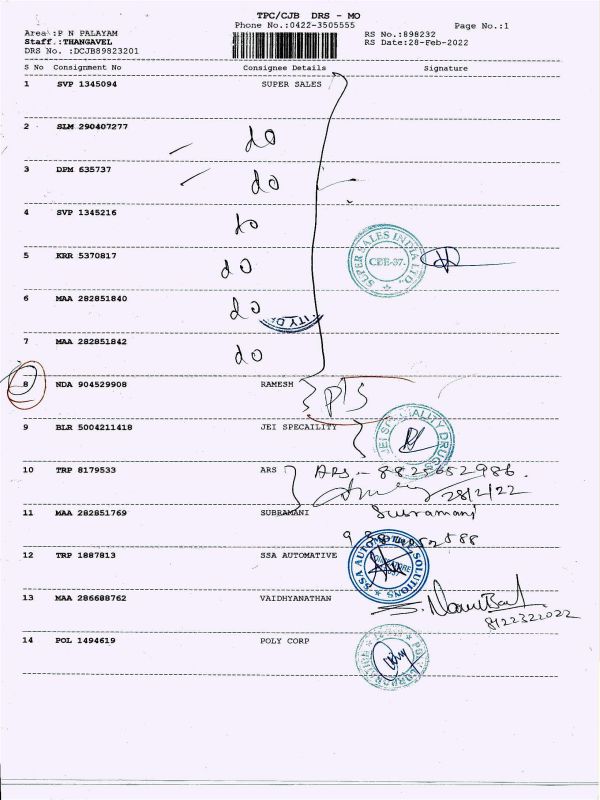 TPC/CJB DRS - MO
Phone No.:0422-3505555 Page No.:1
Area :P N PALAYAM
Staff :THANGAVEL
DRS No. :DCJB89823201
RS No.:898232
RS Date:28-Feb-2022
S No Consignment No Consignee Details Signature
1 SVP 1345094 SUPER SALES
2 SLM 290407277 do
3 DPM 635737 do
4 SVP 1345216 do
5 KRR 5370817 do
SUPER SALES INDIA LTD. CBE-37.
6 MAA 282851840 do
7 MAA 282851842 do
8 NDA 904529908 RAMESH
9 BLR 5004211418 JEI SPECAILITY
JEI SPECIALITY DRUGS
10 TRP 8179533 ARS ARS -
28/2/22
11 MAA 282851769 SUBRAMANI Subramani
12 TRP 1887813 SSA AUTOMATIVE
SOLUTIONS
13 MAA 286688762 VAIDHYANATHAN
8122322022
14 POL 1494619 POLY CORP
CORPORATION